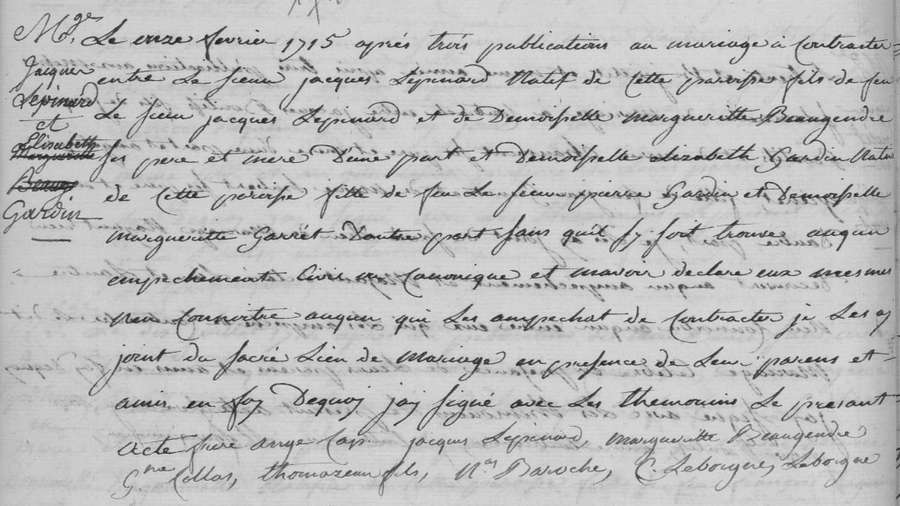 Mge
Jacques
Lepinard
et
Elizabeth
Margueritte
Beaug
Gardin
Le onze fevrier 1715 aprés trois publications au mariage a Contracter
entre Le sieur jacques Lepinard Natif de cette paroisse fils de feu
Le sieur jacques Lepinard et de Demoiselle margueritte Beaugendre
ses pere et mere D'une part et Demoiselle elizabeth Gardin Native
de cette paroisse fille de feu Le sieur pierre Gardin et Demoiselle
margueritte Garrét D'autre part sans quil sy soit trouvé auqun
empechement Civil n Canonique et mavoir declaré eux mesmes
nen Connoitre auqun qui Les ampechat de Contracter je Les ay
joint du sacré Lien de Mariage en presence de Leur parens et
amis en foy Dequoy jay signé avec Les themoins Le present
acte frere ange Cap. jacques Lepinard, margueritte Beaugendre
Gme Collas, thomazeau fils, Nas Baroche, C. Leborgne, Leborgne